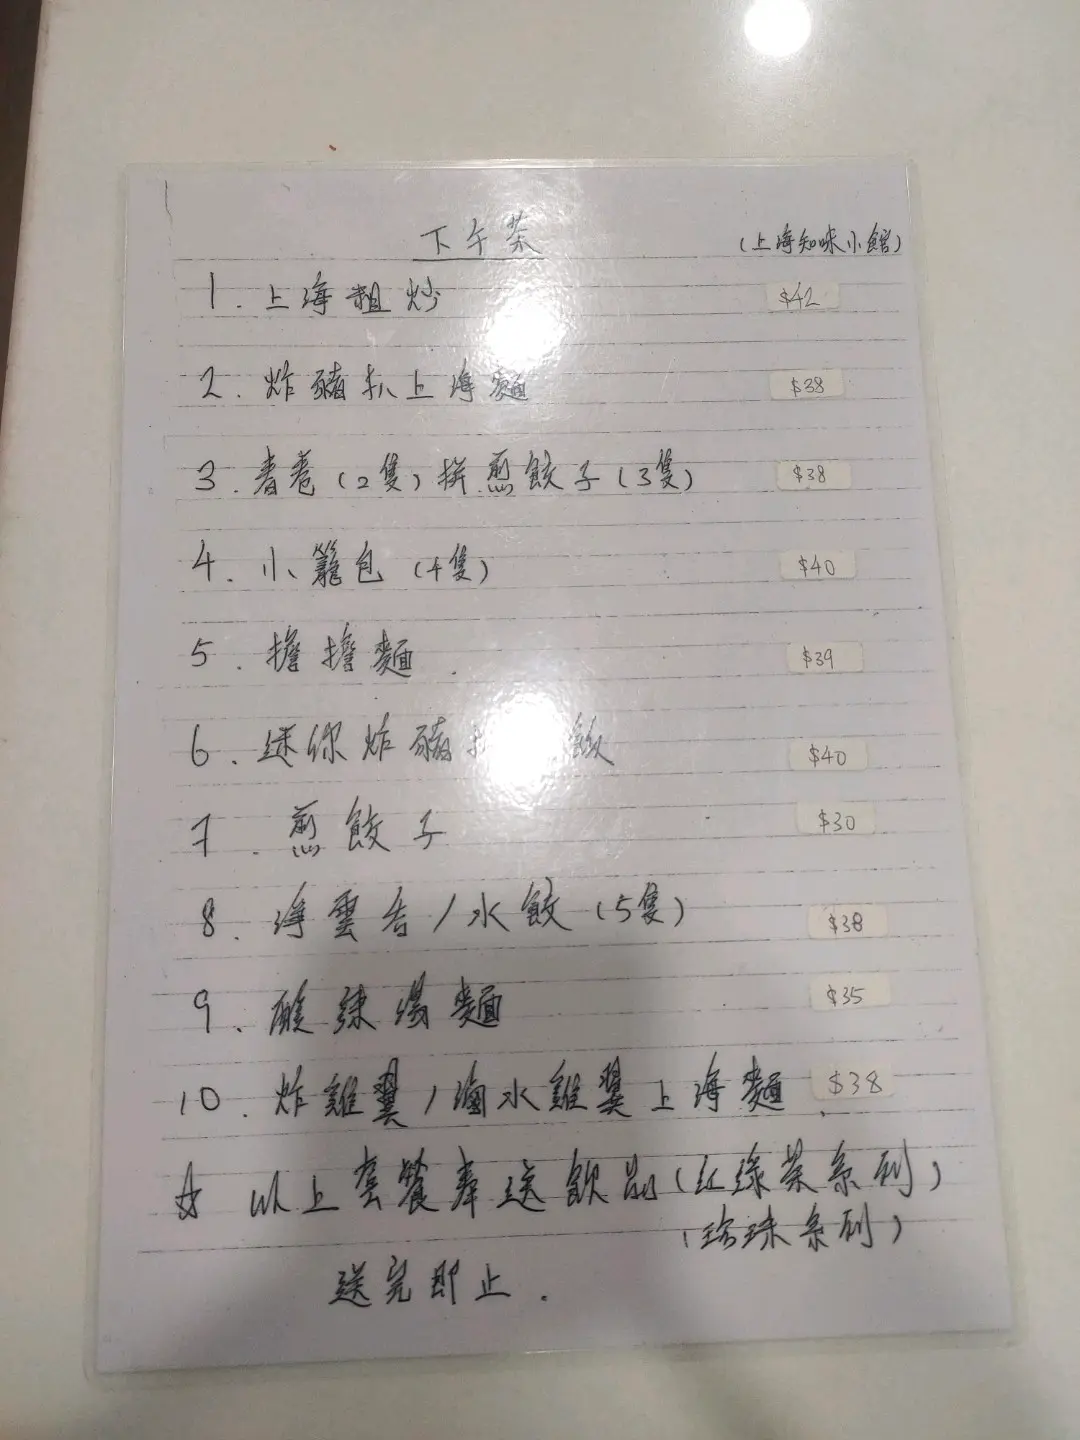 下午茶 (上海知味小館)
1. 上海粗炒 $42
2. 炸豬扒上海麵 $38
3. 春卷(2隻)拼煎餃子(3隻) $38
4. 小籠包(4隻) $40
5. 擔擔麵. $39
6. 迷你炸豬 飯 $40
7. 煎餃子 $30
8. 淨雲吞/水餃(5隻) $38
9. 酸辣湯麵 $35
10. 炸雞翼/滷水雞翼上海麵. $38
☆ 以上套餐奉送飲品(紅綠茶系列)
(珍珠系列)
送完即止.